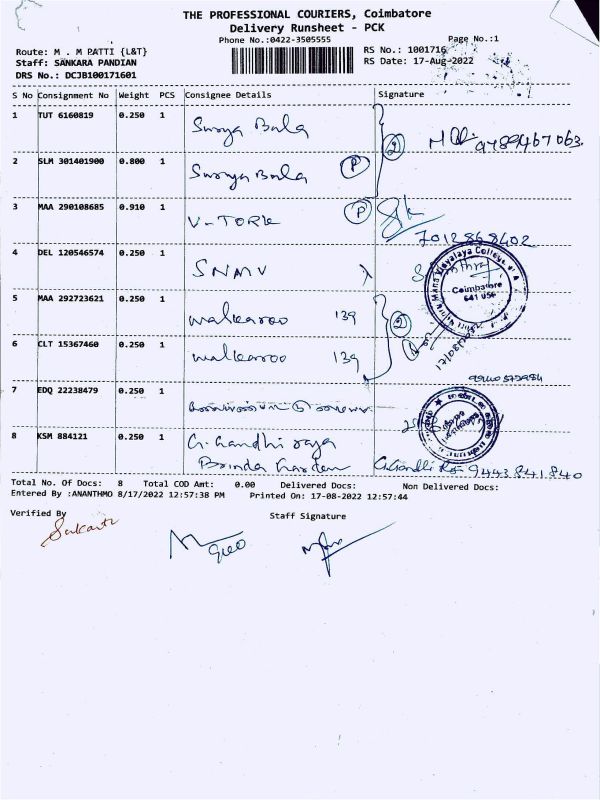 THE PROFESSIONAL COURIERS, Coimbatore
Delivery Runsheet - PCK
Phone No.:0422-3505555
Page No.:1
Route: M . M PATTI {L&T}
RS No.: 1001716
Staff: SANKARA PANDIAN
RS Date: 17-Aug-2022
DRS No.: DCJB100171601
S No Consignment No Weight PCS Consignee Details Signature
1 TUT 6160819 0.250 1 Surya Bala
9789467063.
2 SLM 301401900 0.800 1 Surya Bala P
2
3 MAA 290108685 0.910 1 V-TORK P
7012868402
4 DEL 120546574 0.250 1 SNMV
Coimbatore
5 MAA 292723621 0.250 1 walkaroo 139
2
6 CLT 15367460 0.250 1 walkaroo 139
7 EDQ 22238479 0.250 1
8 KSM 884121 0.250 1 G. Gandhi raja
Brinda Garden 9443841840
Total No. Of Docs: 8 Total COD Amt: 0.00 Delivered Docs: Non Delivered Docs:
Entered By :ANANTHMO 8/17/2022 12:57:38 PM Printed On: 17-08-2022 12:57:44
Verified By
Staff Signature